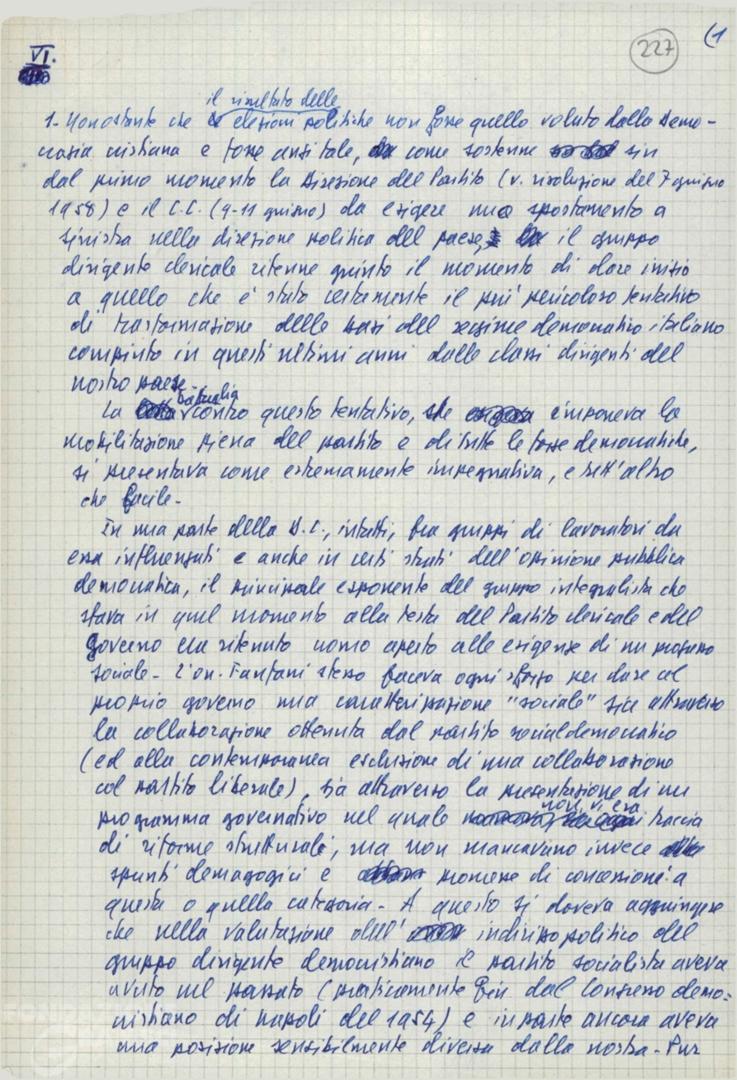 227
(1
VI.
il risultato delle
1- Nonostante che elezioni politiche non fosse quello voluto dalla Demo-
crazia cristiana e fosse anzi tale, come sostenne sin
dal primo momento la Direzione del Partito (v. risoluzione del 7 giugno
1958) e il C.C. (9-11 giugno) da esigere uno spostamento a
sinistra nella direzione politica del paese, il gruppo
dirigente clericale ritenne giunto il momento di dare inizio
a quello che è stato certamente il più pericoloso tentativo
di trasformazione delle basi del regime democratico italiano
compiuto in questi ultimi anni dalle classi dirigenti del
nostro paese-
battaglia
La contro questo tentativo, che imponeva la
mobilitazione piena del partito e di tutte le forze democratiche,
si presentava come estremamente impegnativa, e tutt'altro
che facile-
In una parte della D.C., infatti, fra gruppi di lavoratori da
essa influenzati e anche in certi strati dell'opinione pubblica
democratica, il principale esponente del gruppo integralista che
stava in quel momento alla testa del Partito clericale e del
governo era ritenuto uomo aperto alle esigenze di un progresso
sociale- L'on. Fanfani stesso faceva ogni sforzo per dare al
proprio governo una caratterizzazione "sociale" sia attraverso
la collaborazione ottenuta dal partito socialdemocratico
(ed alla contemporanea esclusione di una collaborazione
col partito liberale), sia attraverso la presentazione di un
non vi era
programma governativo nel quale traccia
di riforme strutturali, ma non mancavano invece
spunti demagogici e promesse di concessioni a
questa o quella categoria- A questo si doveva aggiungere
che nella valutazione dell' indirizzo politico del
gruppo dirigente democristiano il partito socialista aveva
avuto nel passato (praticamente fin dal Congresso demo-
cristiano di Napoli del 1954) e in parte ancora aveva
una posizione sensibilmente diversa dalla nostra- Pur